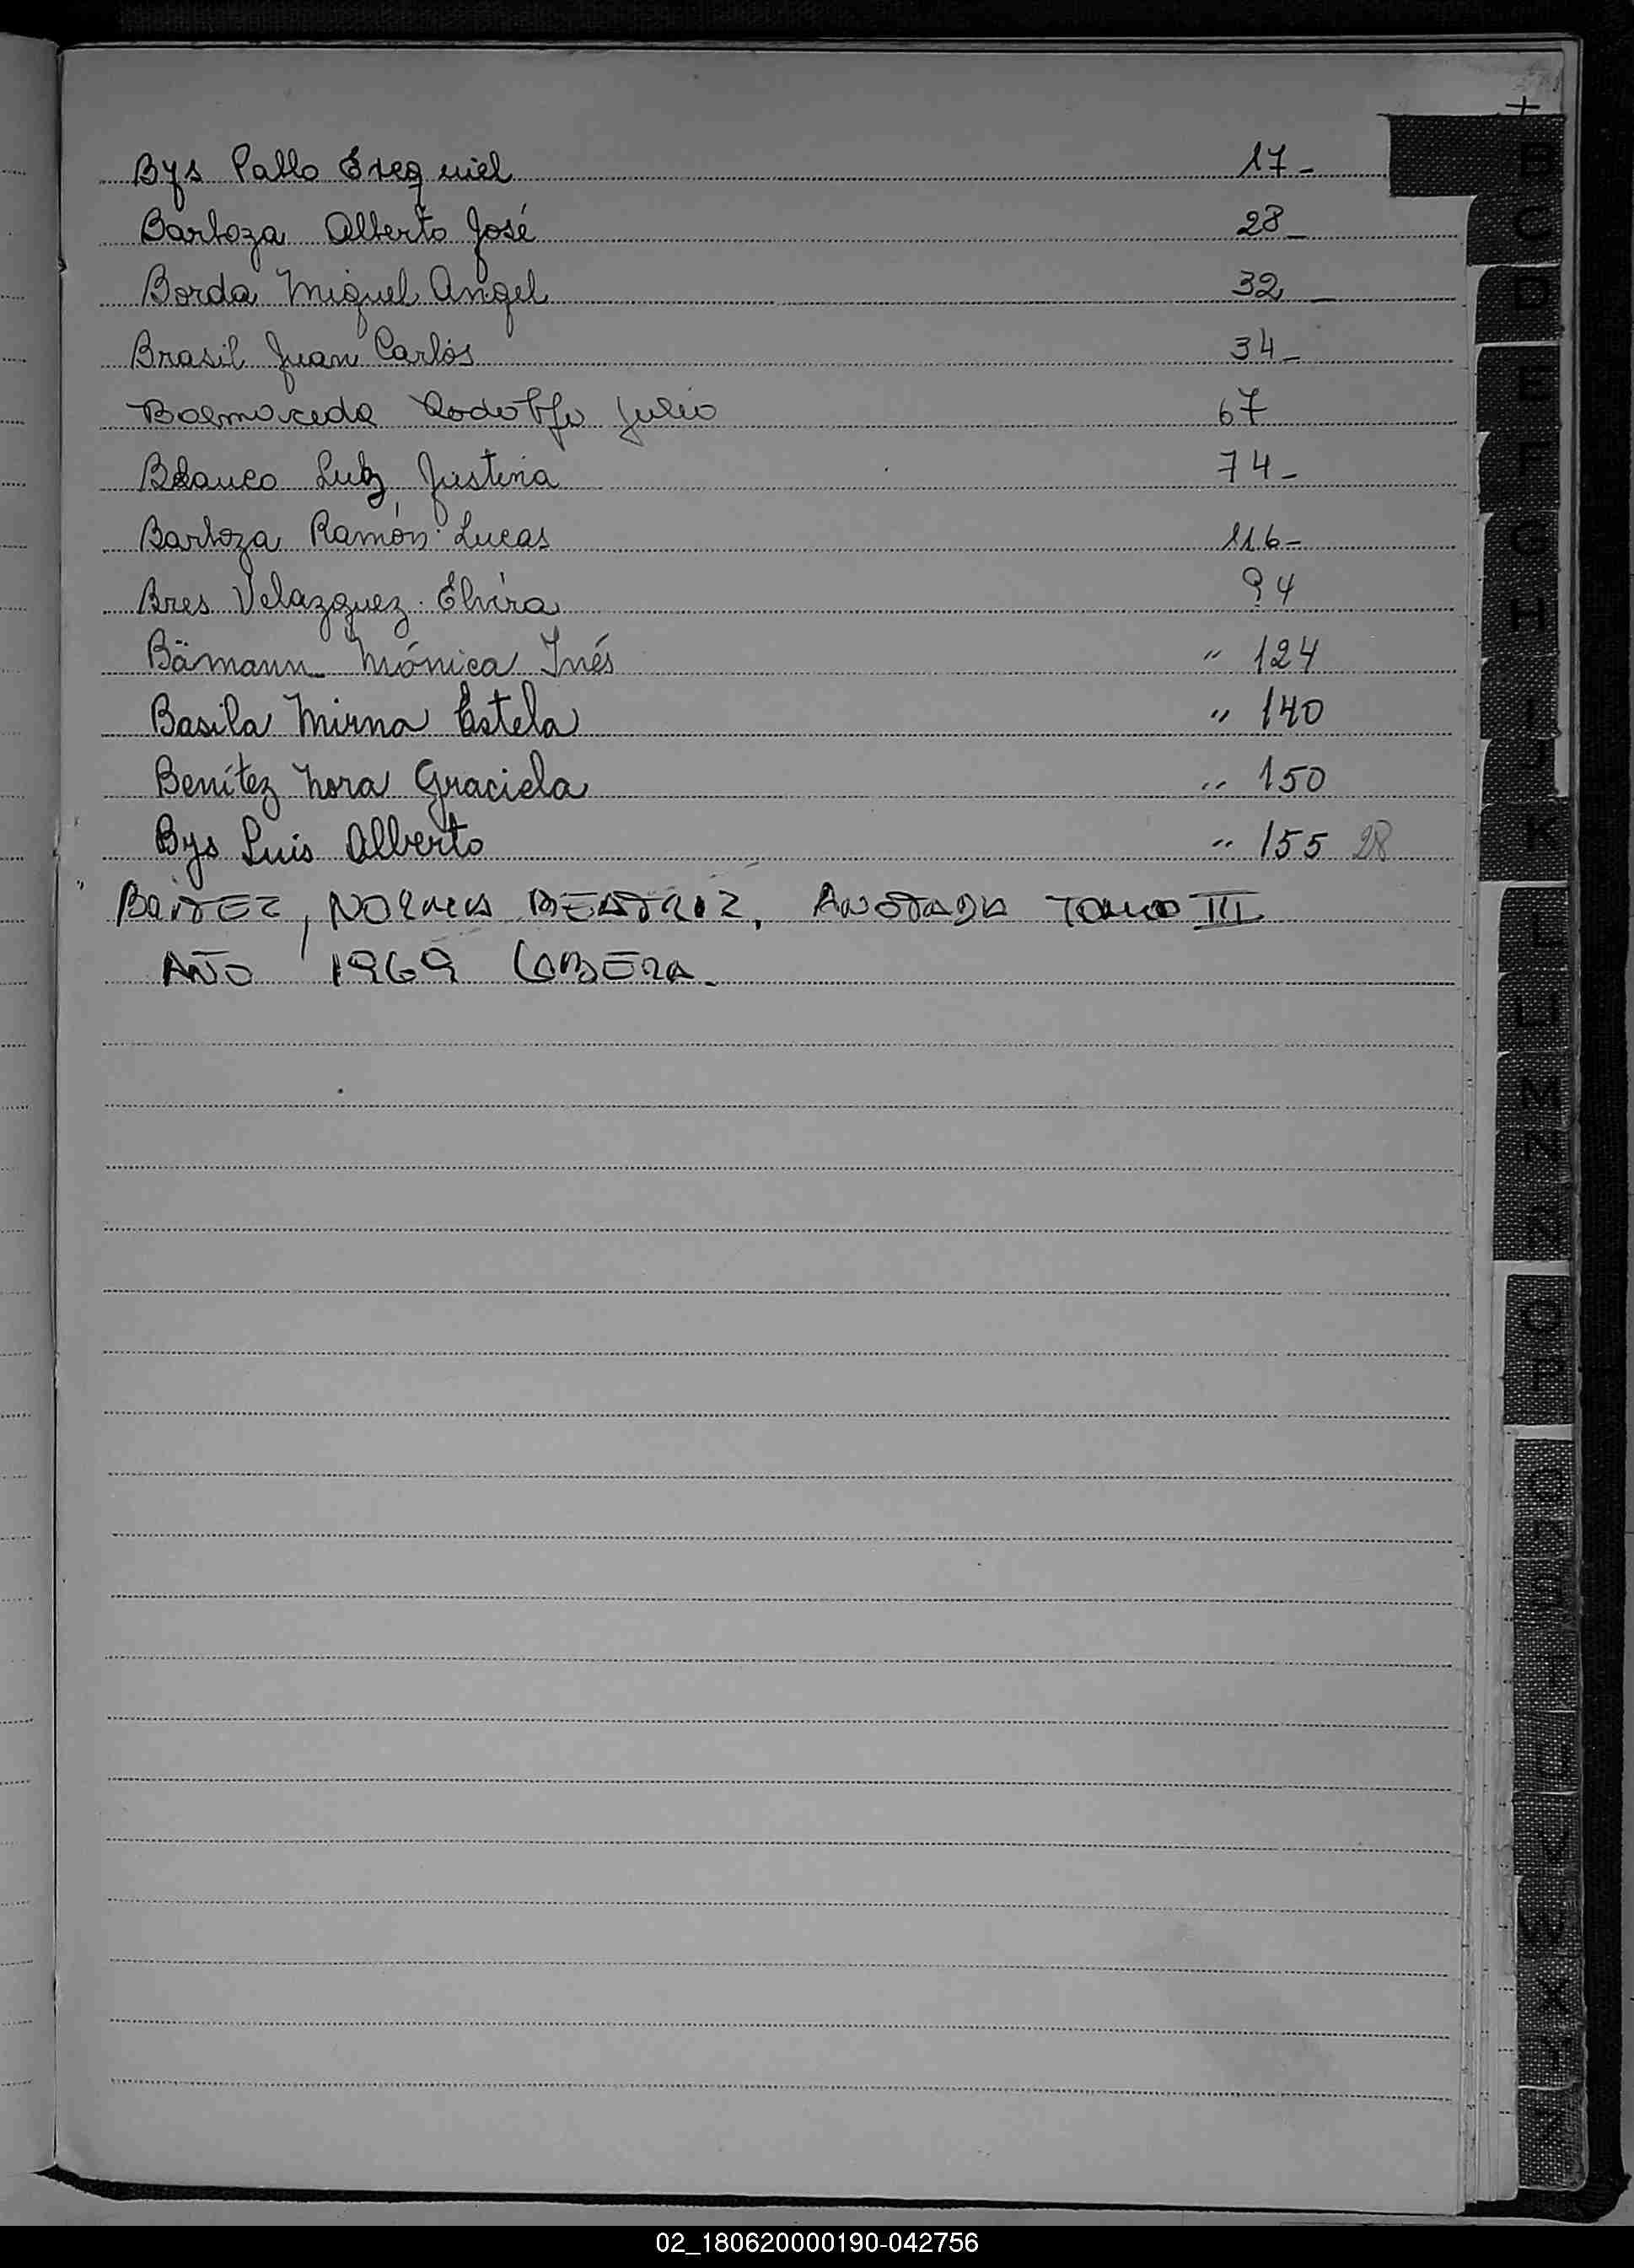 Bys Pablo Ezequiel 17-
Barboza Alberto José 28-
Borda Miguel Angel 32-
Brasil Juan Carlos 34-
Balmaceda Rodolfo Julio 67
Blanco Luz Justina 74-
Barboza Ramón Lucas 116-
Bres Velazquez Elvira 94
Bämann Mónica Inés " 124
Basila Mirna Estela " 140
Benítez Nora Graciela " 150
Bys Luis Alberto " 155 28
BAITEZ, NORMA BEATRIZ, ANOTADA TOMO III
AÑO 1969
B
C
D
E
F
G
H
I
J
K
L
LL
M
N
Ñ
O
P
Q
R
S
T
U
V
W
X
Y
Z
02_180620000190-042756